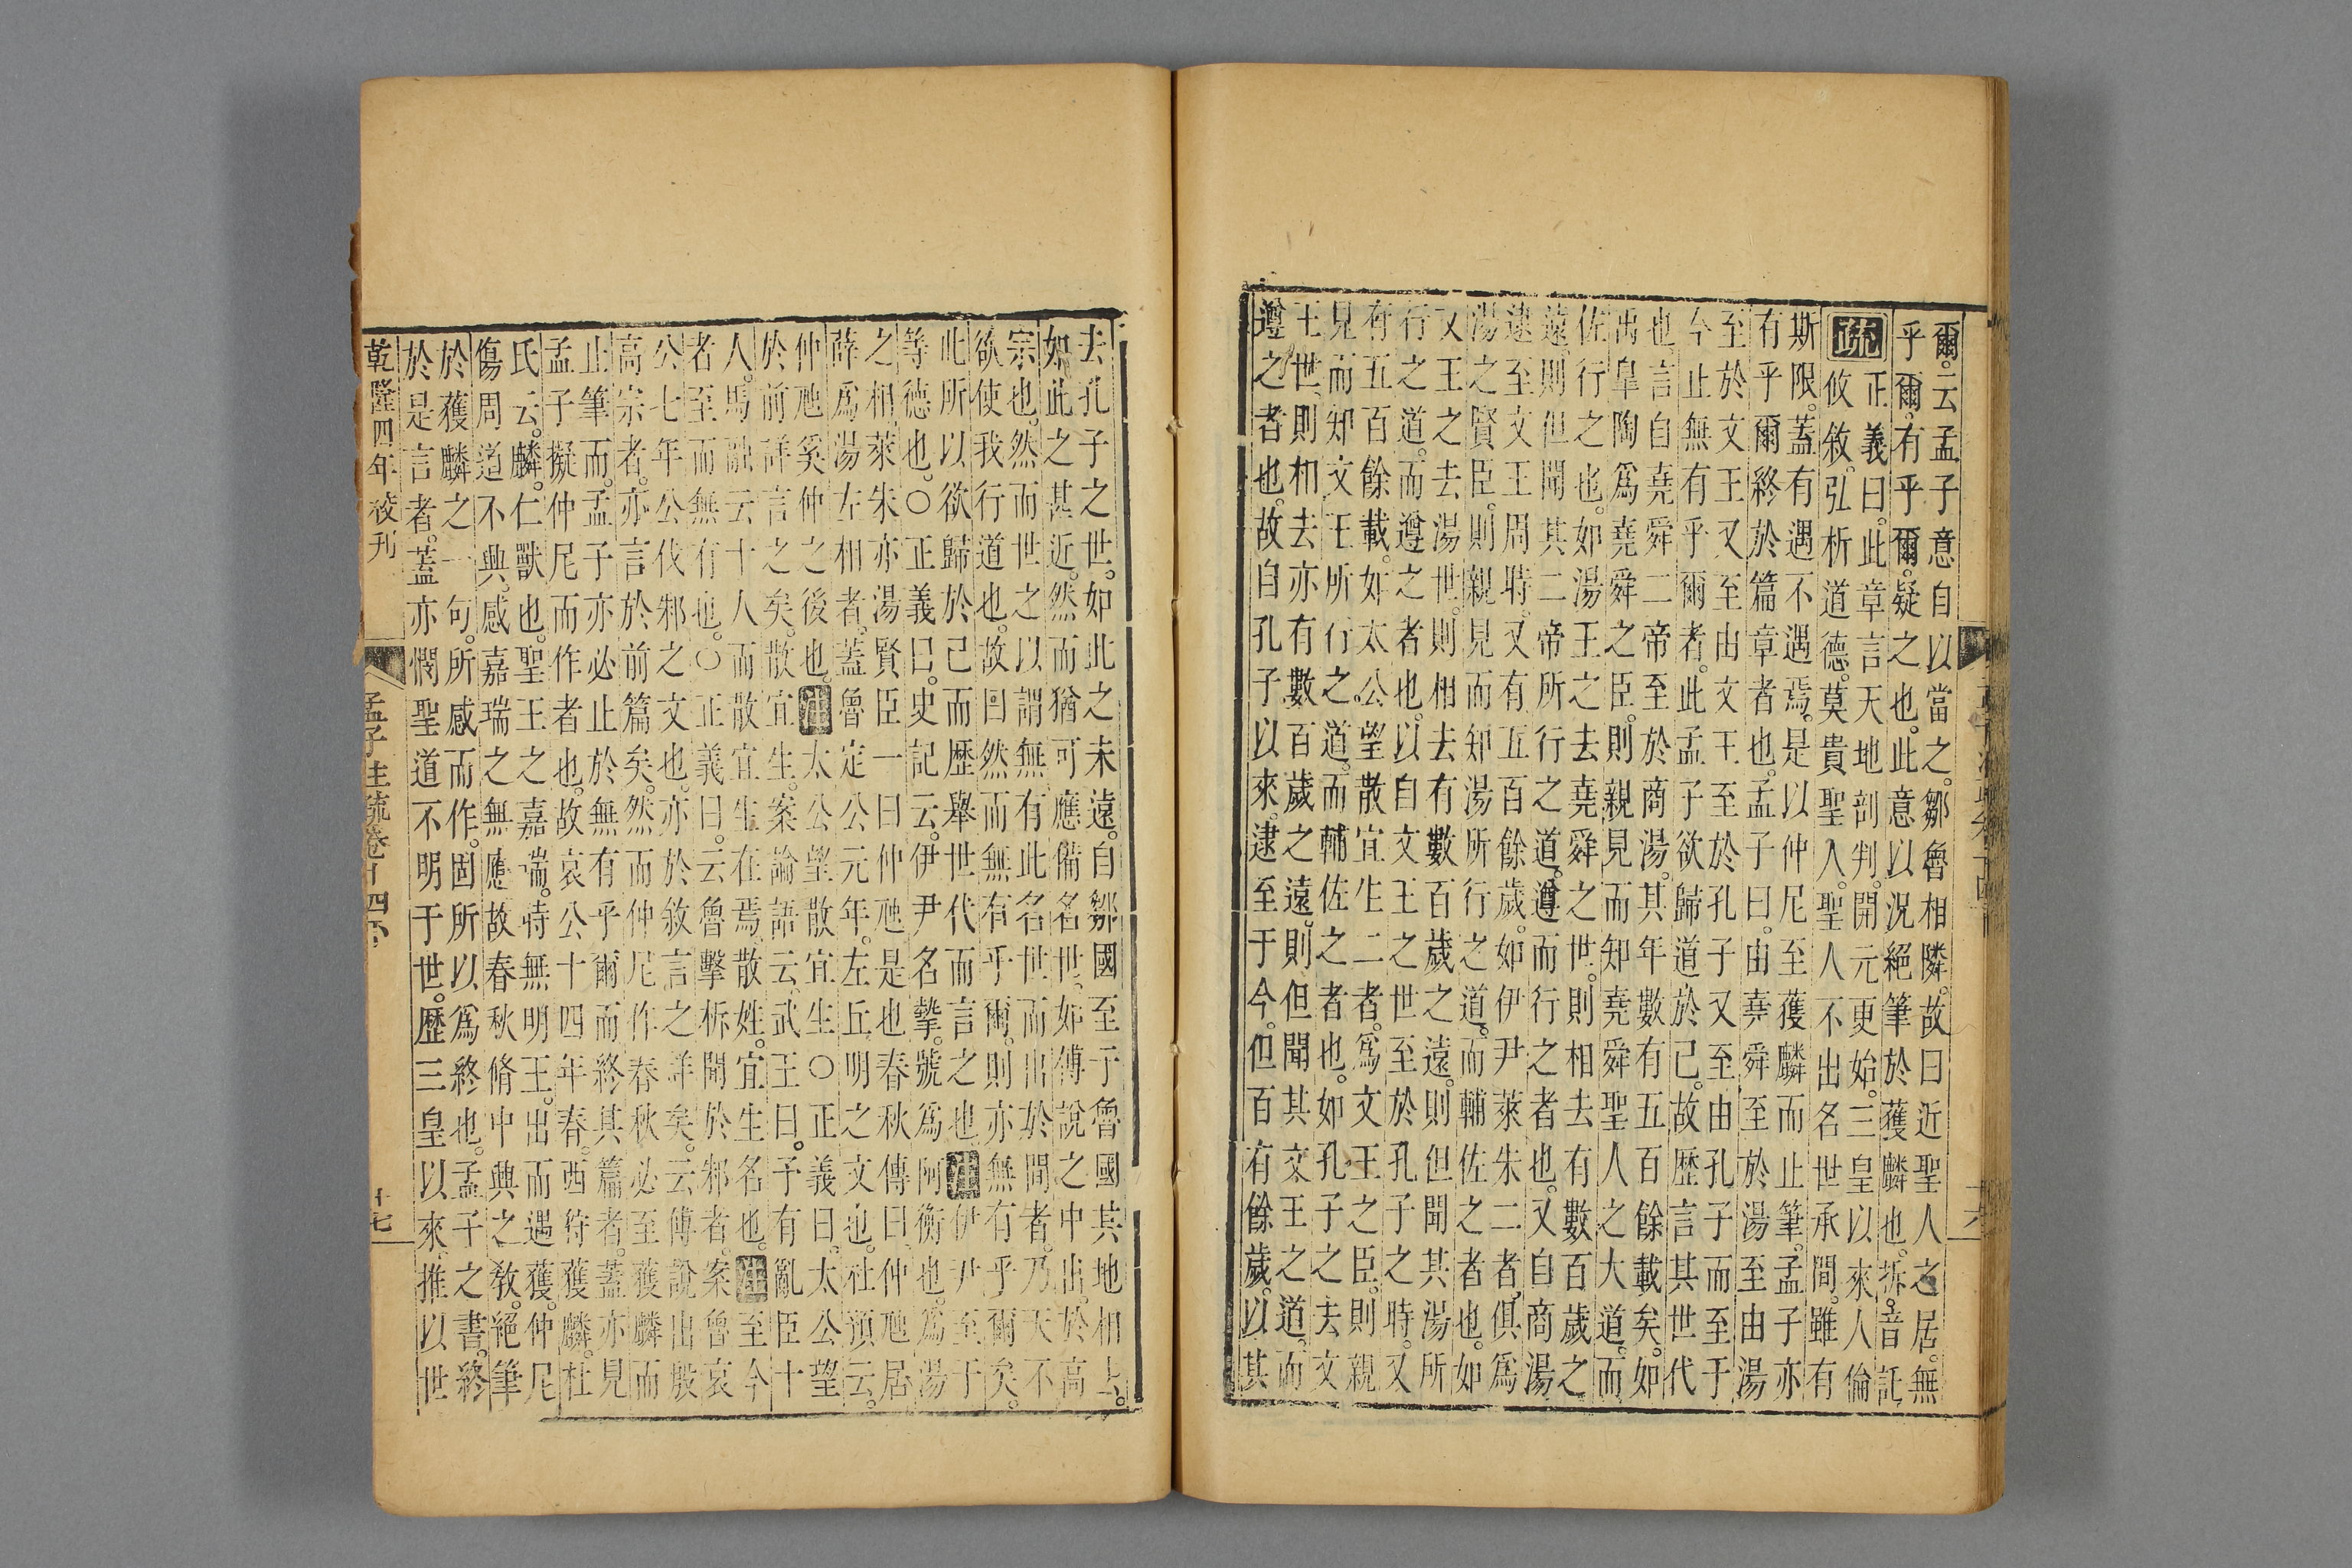 爾。云孟子意自以當之。鄒魯相隣。故曰近聖人之居。無
乎爾。有乎爾。疑之也。此意以況絕筆於獲麟也。拆。音託
疏
正義曰。此章言天地剖判。開元更始。三皇以來人倫
攸敘。弘析道德。莫貴聖人。聖人不出名世承間。雖有
斯限。蓋有遇不遇焉。是以仲尼至獲麟而止筆。孟子亦
有乎爾終於篇章者也。孟子曰。由堯舜至於湯至由湯
至於文王又至由文王至於孔子又至由孔子而至于
今止無有乎爾者。此孟子欲歸道於己。故歷言其世代
也言自堯舜二帝至於商湯。其年數有五百餘載矣。如
禹臯陶爲堯舜之臣。則親見而知堯舜聖人之大道。而
佐行之也。如湯王之去堯舜之世。則相去有數百歲之
遠。則但聞其二帝所行之道。遵而行之者也。又自商湯
逮至文王周時。又有五百餘歲。如伊尹萊朱二者。俱爲
湯之賢臣。則親見而知湯所行之道。而輔佐之者也。如
文王之去湯世。則相去有數百歲之遠。則但聞其湯所
行之道。而遵之者也。以自文王之世至於孔子之時。又
有五百餘載。如太公望散宜生二者。爲文王之臣。則親
見而知文王所行之道。而輔佐之者也。如孔子之去文
王世。則相去亦有數百歲之遠。則但聞其文王之道。而
遵之者也。故自孔子以來。逮至于今。但百有餘歲。以其
去孔子之世。如此之未遠。自鄒國至于魯國其地相去。
如此之甚近。然而猶可應備名世。如傅說之中出於高
宗也。然而世之以謂無有此名世而出於間者。乃天不
欲使我行道也。故曰然而無有乎爾。則亦無有乎爾矣。
此所以欲歸於己而歷舉世代而言之也注伊尹至于
等德也。○正義曰。史記云。伊尹名摯。號爲阿衡也。爲湯
之相。萊朱亦湯賢臣一曰仲虺是也春秋傳曰仲虺居
薛爲湯左相者。蓋魯定公元年。左丘明之文也。杜預云。
仲虺奚仲之後也。注太公望散宜生○正義曰。太公望
於前詳言之矣。散宜生。案論語云。武王曰。予有亂臣十
人。馬融云十人而散宜生在焉。散姓。宜生名也。注至今
者至而無有也。○正義曰。云魯擊柝聞於邾者。案魯哀
公七年公伐邾之文也。亦於敘言之詳矣。云傅說出殷
高宗者。亦言於前篇矣。然而仲尼作春秋必至獲麟而
止筆而孟子亦必止於無有乎爾而終其篇者。蓋亦見
孟子擬仲尼而作者也。故哀公十四年春。西狩獲麟。杜
氏云。麟。仁獸也。聖王之嘉瑞。時無明王。出而遇獲。仲尼
傷周道不興。感嘉瑞之無應故春秋脩中興之敎。絕筆
於獲麟之一句。所感而作。固所以爲終也。孟子之書。終
於是言者。蓋亦憫聖道不明于世。歷三皇以來。推以世
乾隆四年校刊
孟子注疏卷十四下
十七